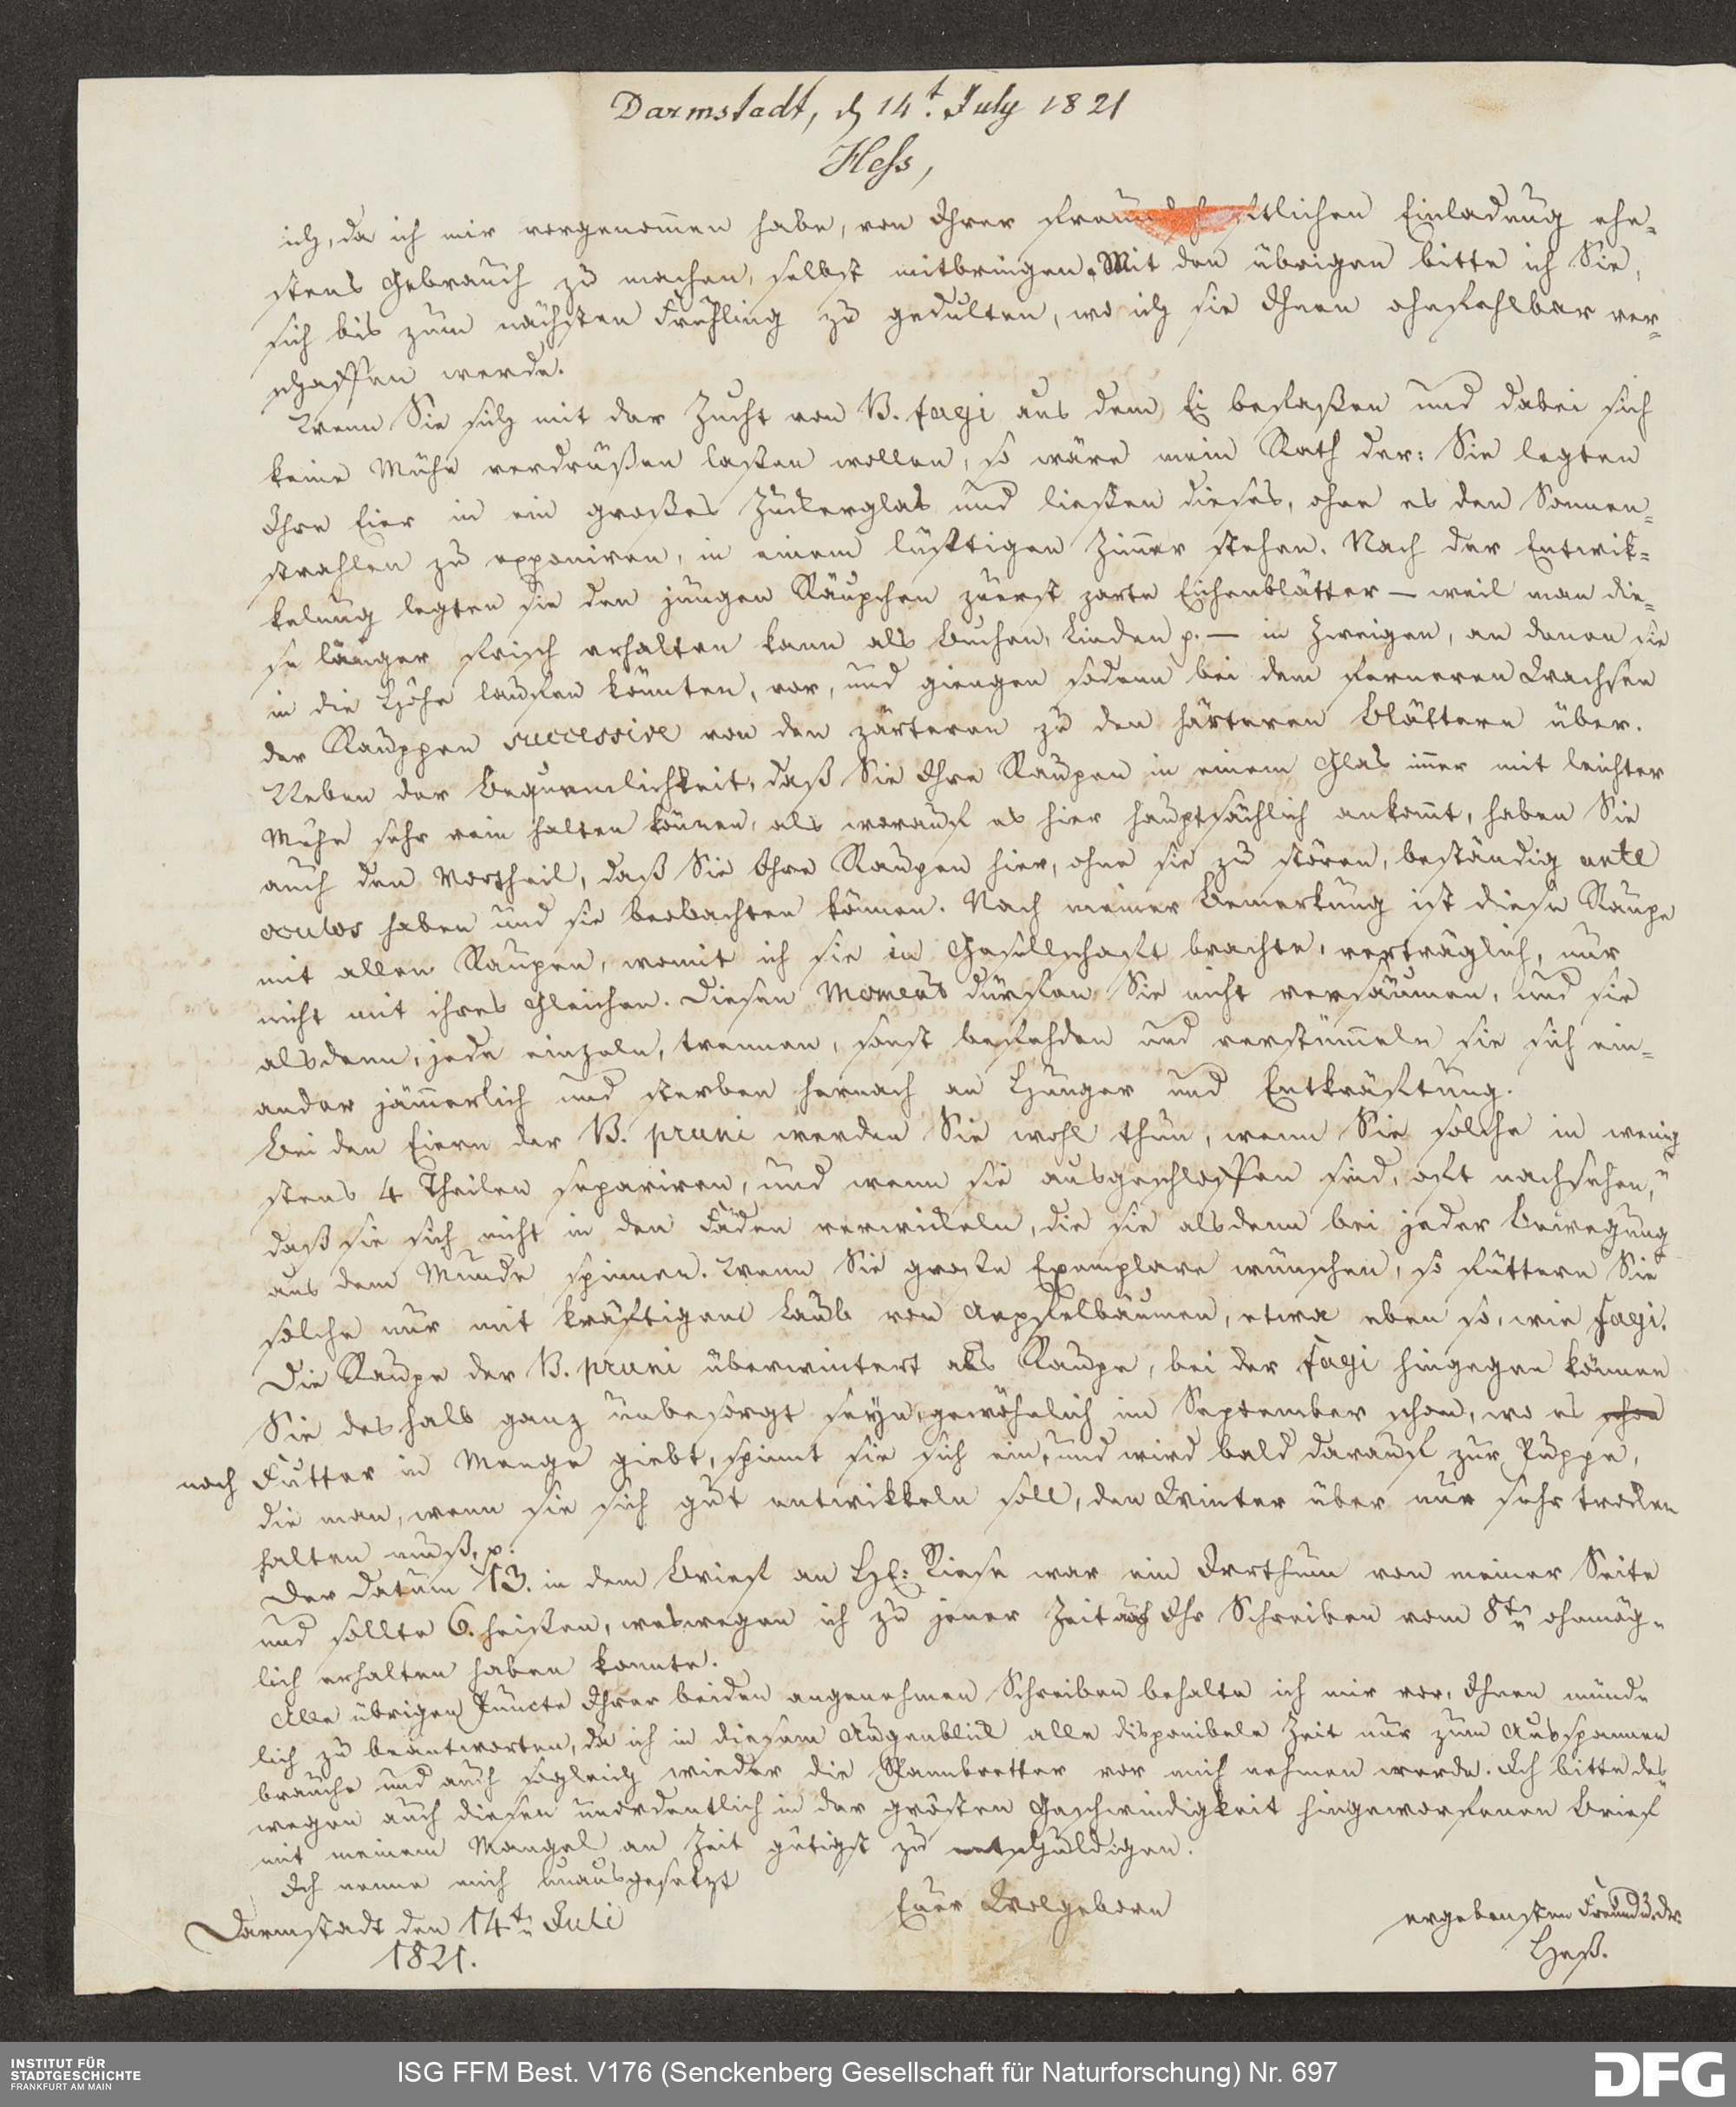 Darmstadt, d 14t. July 1821
Hess,
ich, da ich mir vorgenom̄en habe, von Ihrer freundschaftlichen Einladung ehe=
stens Gebrauch zu machen, selbst mitbringen. Mit den übrigen bitte ich Sie,
sich bis zum nächsten Frühling zu gedulten, wo ich sie Ihnen ohnfehlbar ver=
schaffen werde.
Wenn Sie sich mit der Zucht von B. fagi aus dem Ei befaßen und dabei sich
keine Mühe verdrüßen laßen wollen, so wäre mein Rath der: Sie legten
Ihre Eier in ein großes Zuckerglas und ließen dieses, ohne es den Sonnen=
strahlen zu exponiren, in einem luftigen Zim̄er stehen. Nach der Entwik=
kelung legten sie den jungen Räupchen zuerst zarte Eichenblätter — weil man die=
se länger frisch erhalten kann als Buchen, Linden p. — in Zweigen, an denen sie
in die Höhe laufen könnten, vor, und giengen sodann bei dem ferneren Wachsen
der Rauppen successive von den zärteren zu den härteren Blättern über.
Neben der Bequemlichkeit, daß Sie Ihre Raupen in einem Glas im̄er mit leichter
Mühe sehr rein halten können, als worauf es hier hauptsächlich ankom̄t, haben Sie
auch den Vortheil, daß Sie Ihre Raupen hier, ohne sie zu stören, beständig ante
oculos haben und sie beobachten können. Nach meiner Bemerkung ist diese Raupe
mit allen Raupen, womit ich sie in Gesellschaft brachte, verträglich, nur
nicht mit ihres Gleichen. Diesen Moment dürfen Sie nicht versäumen, und sie
alsdann, jede einzeln, trennen, sonst befehden und verstüm̄eln sie sich ein=
ander jäm̄erlich und sterben hernach an Hunger und Entkräftung.
Bei den Eiern der B. pruni werden Sie wohl thun, wenn Sie solche in wenig
stens 4 Theilen separiren, und wenn sie ausgeschloffen sind, oft nachsehen,
daß sie sich nicht in den Fäden verwickeln, die sie alsdann bei jeder Bewegung
aus dem Munde spinnen. Wenn Sie große Exemplare wünschen, so füttern Sie
solche nur mit kräftigem Laub von Aepfelbäumen, etwa eben so, wie fagi.
Die Raupe der B. pruni überwintert als Raupe, bei der fagi hingegen können
Sie deshalb ganz unbesorgt seyn, gewöhnlich im September schon, wo es schon
noch Futter in Menge giebt, spinnt sie sich ein, und wird bald darauf zur Puppe,
die man, wenn sie sich gut entwikkeln soll, den Winter über nur sehr trocken
halten muß, p.
Der Datum 13. in dem Brief an H: Riese war ein Irrthum von meiner Seite
und sollte 6. heißen, weswegen ich zu jener Zeit auch Ihr Schreiben vom 8tn ohnmög=
lich erhalten haben konnte.
Alle übrigen Puncte Ihrer beiden angenehmen Schreiben behalte ich mir vor, Ihnen münd=
lich zu beantworten, da ich in diesem Augenblick alle disponibele Zeit nur zum Ausspannen
brauche und auch sogleich wieder die Spannbretter vor mich nehmen werde. Ich bitte des=
wegen auch diesen unordentlich in der grösten Geschwindigkeit hingeworfenen Brief
mit meinem Mangel an Zeit gütigst zu entschuldigen.
Ich nenne mich unausgesetzt
Euer Wolgeborn
ergebensten Freund u. dr.
Heß.
Darmstadt den 14tn Juli
1821.
INSTITUT FÜR
STADTGESCHICHTE
FRANKFURT AM MAIN
ISG FFM Best. V176 (Senckenberg Gesellschaft für Naturforschung) Nr. 697
DFG